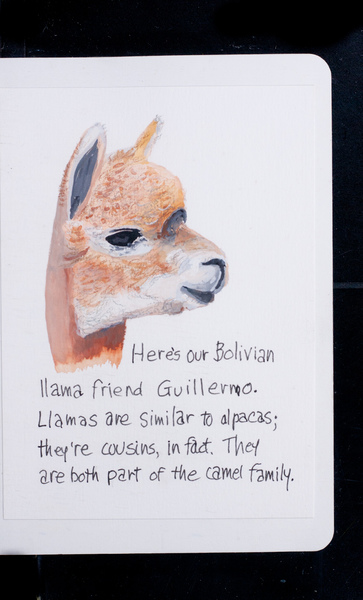 Here's our Bolivian
llama friend Guillermo.
Llamas are similar to alpacas;
they're cousins, in fact. They
are both part of the camel family.